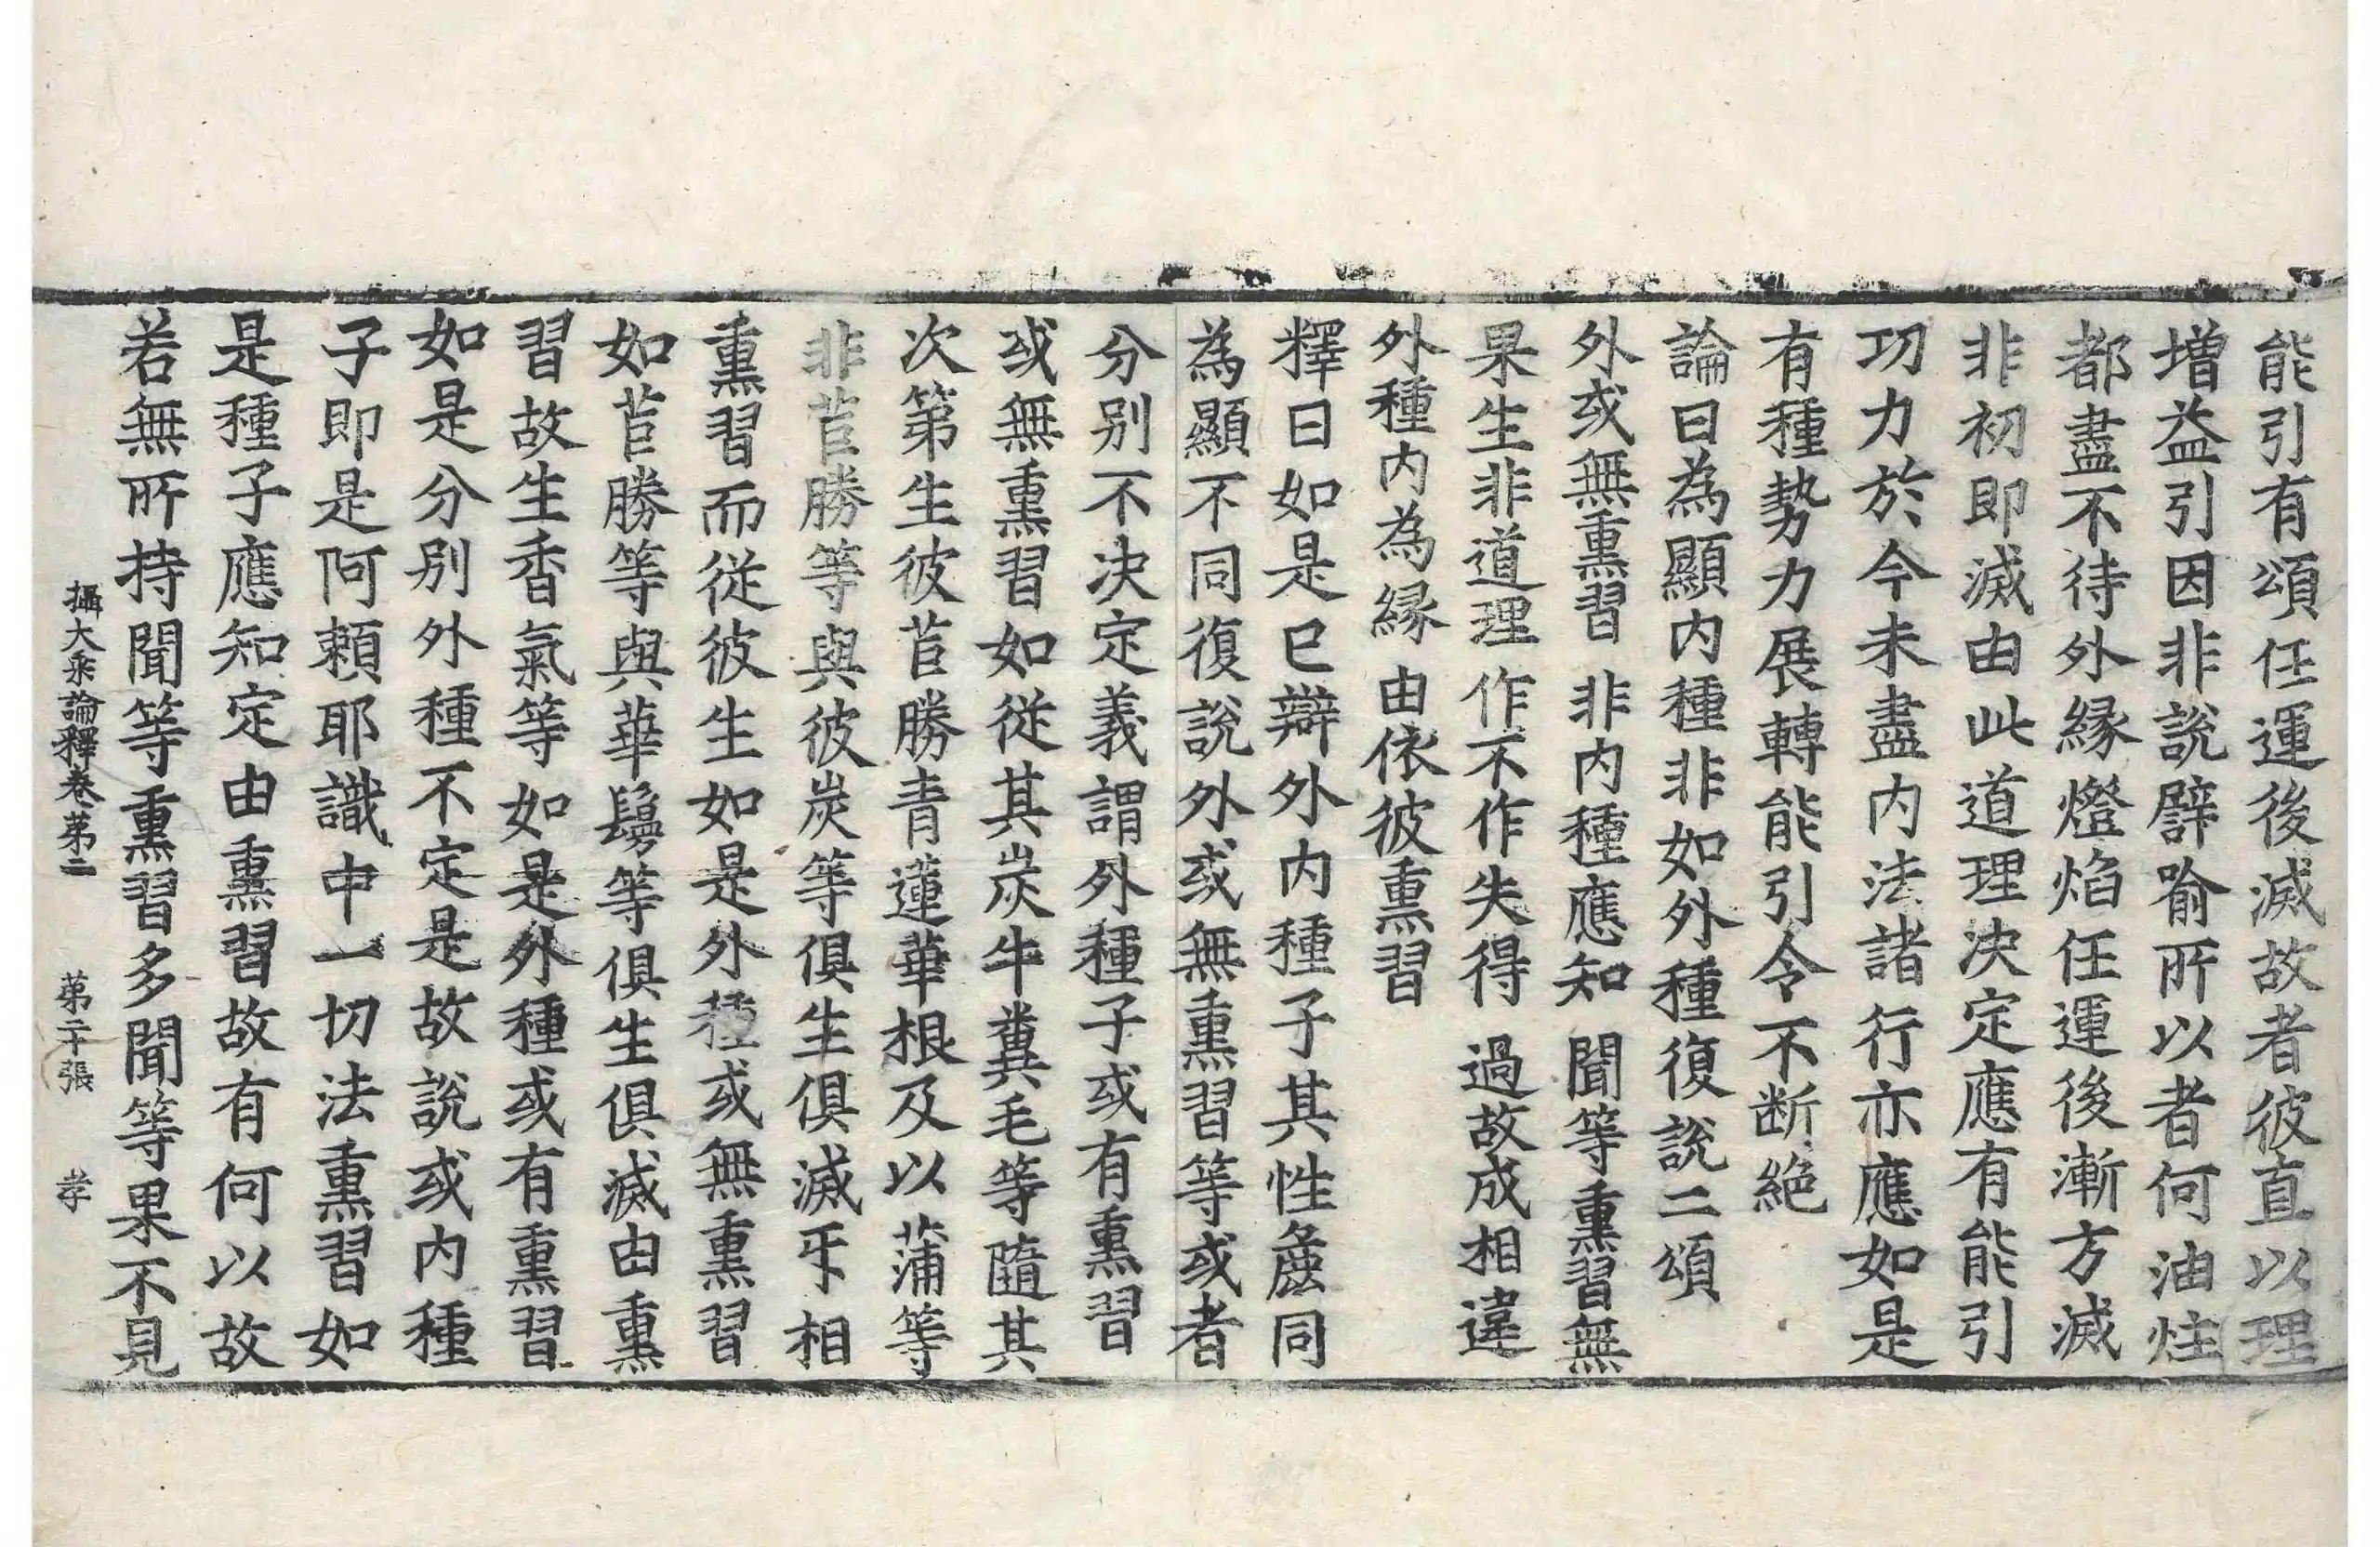 能引有頌任運後滅故者彼直以理
增益引因非說譬喻所以者何油炷
都盡不待外緣燈焰任運後漸方滅
非初即滅由此道理決定應有能引
功力於今未盡內法諸行亦應如是
有種勢力展轉能引令不斷絕
論曰為顯內種非如外種復說二頌
外或無熏習 非內種應知 聞等熏習無
果生非道理 作不作失得 過故成相違
外種內為緣 由依彼熏習
釋曰如是已辯外內種子其性麁同
為顯不同復說外或無熏習等或者
分別不決定義謂外種子或有熏習
或無熏習如從其炭牛糞毛等隨其
次第生彼苣勝青蓮華根及以蒲等
非苣勝等與彼炭等俱生俱滅乎相
熏習而從彼生如是外種或無熏習
如苣勝等與華鬘等俱生俱滅由熏
習故生香氣等如是外種或有熏習
如是分別外種不定是故說或內種
子即是阿賴耶識中一切法熏習如
是種子應知定由熏習故有何以故
若無所持聞等熏習多聞等果不見
攝大乘論釋卷第二 第二十張 孝